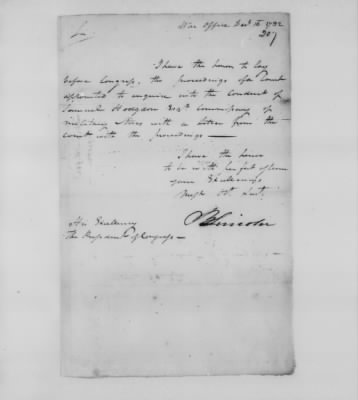 War Office Decr 12 1782
207
I have the honor to lay
before Congress, the proceedings of a Court
appointed to enquire into the Conduct of
Samuel Hodgdon Commissary of
military Stores with a letter from the
court with the proceedings —
I have the honor
to be with perfect esteem
your Excellency's
Lincoln
His Excellency
The President of Congress —